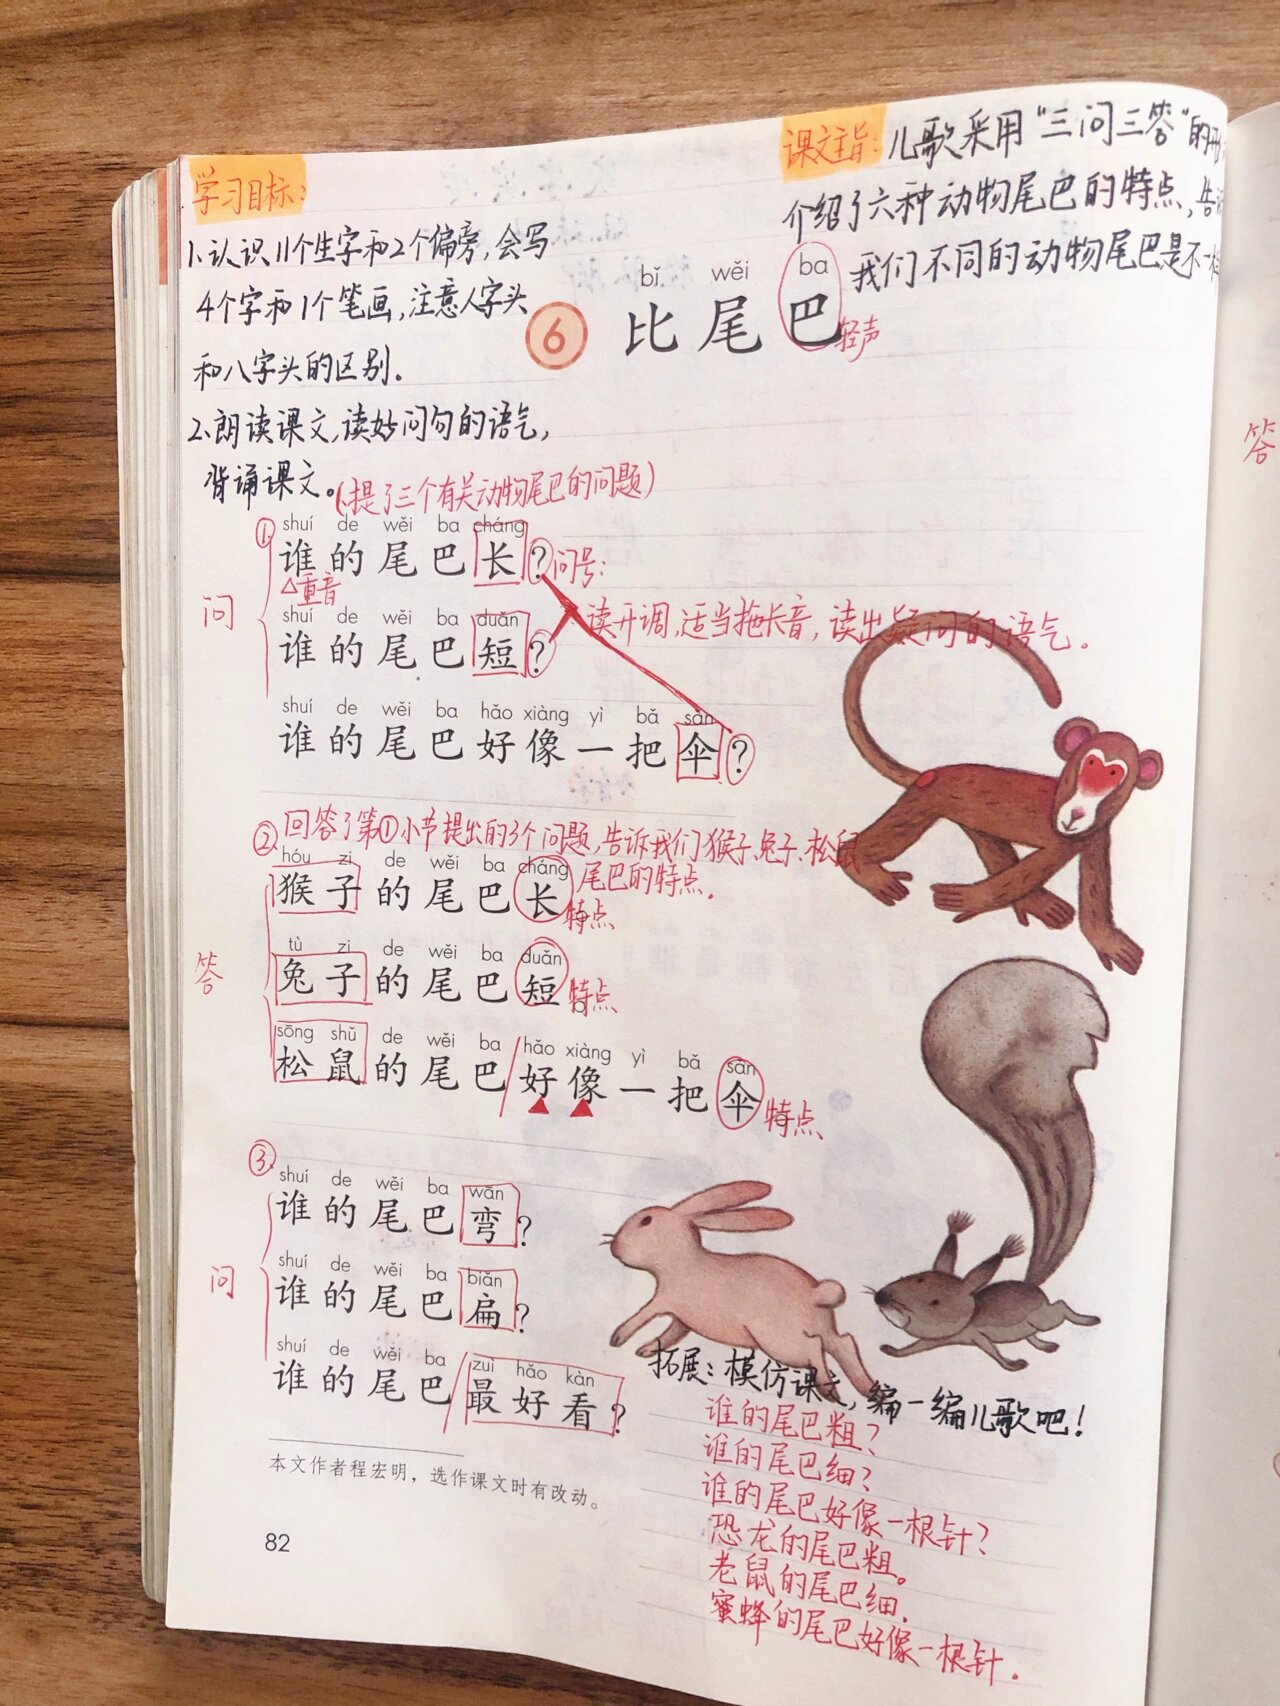 学习目标:
1.认识11个生字和2个偏旁,会写
4个字和1个笔画,注意人字头
和八字头的区别.
2.朗读课文,读好问句的语气,
背诵课文。
课文主旨: 儿歌采用"三问三答"的形
介绍了六种动物尾巴的特点,告诉
我们不同的动物尾巴是不一样
bǐ wěi ba
6 比尾巴
轻声
(提了三个有关动物尾巴的问题)
①
shuí de wěi ba cháng
谁的尾巴长?
问号:
△重音
读升调,适当拖长音,读出疑问的语气。
问
shuí de wěi ba duǎn
谁的尾巴短?
shuí de wěi ba hǎo xiàng yì bǎ sǎn
谁的尾巴好像一把伞?
② 回答了第①小节提出的3个问题,告诉我们猴子、兔子、松鼠
尾巴的特点.
hóu zi de wěi ba cháng
猴子的尾巴长
特点
答
tù zi de wěi ba duǎn
兔子的尾巴短
特点
sōng shǔ de wěi ba hǎo xiàng yì bǎ sǎn
松鼠的尾巴/好像一把伞
特点
③
shuí de wěi ba wān
谁的尾巴弯?
问
shuí de wěi ba biǎn
谁的尾巴扁?
shuí de wěi ba zuì hǎo kàn
谁的尾巴/最好看?
拓展:模仿课文,编一编儿歌吧!
谁的尾巴粗?
谁的尾巴细?
谁的尾巴好像一根针?
恐龙的尾巴粗。
老鼠的尾巴细.
蜜蜂的尾巴好像一根针.
本文作者程宏明,选作课文时有改动。
82
答